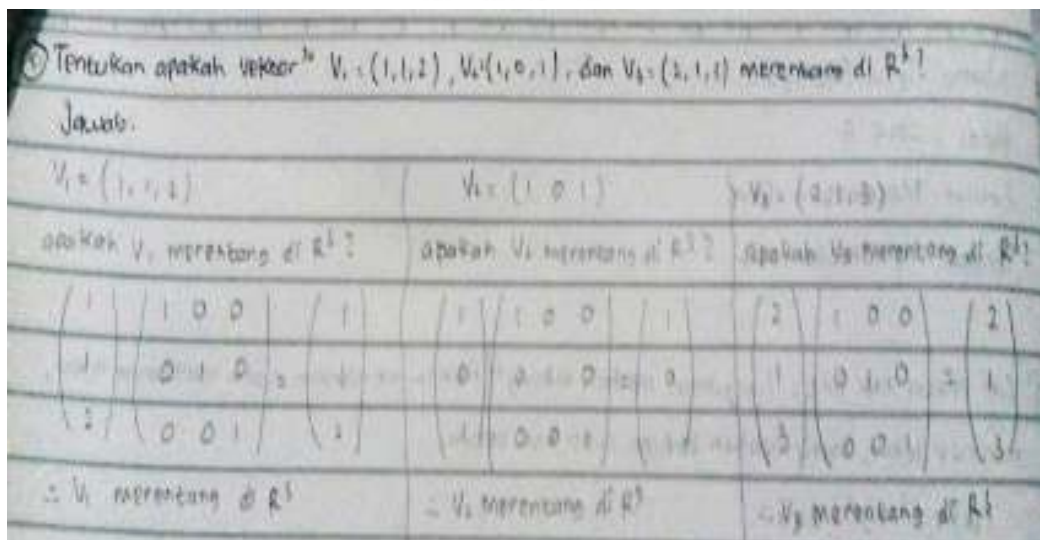 Tentukan apakah vektor² V₁ = (1,1,2), V₂ = (1,0,1), dan V₃ = (2,1,3) merentang di R³?
Jawab.
V₁ = (1, 1, 2)
apakah V₁ merentang di R³?
( 1 ) ( 1 0 0 ) ( 1 )
( 1 ) ( 0 1 0 ) = ( 1 )
( 2 ) ( 0 0 1 ) ( 2 )
∴ V₁ merentang di R³
V₂ = (1 0 1)
apakah V₂ merentang di R³?
( 1 ) ( 1 0 0 ) ( 1 )
( 0 ) ( 0 1 0 ) = ( 0 )
( 1 ) ( 0 0 1 ) ( 1 )
∴ V₂ merentang di R³
V₃ = (2, 1, 3)
apakah V₃ merentang di R³?
( 2 ) ( 1 0 0 ) ( 2 )
( 1 ) ( 0 1 0 ) = ( 1 )
( 3 ) ( 0 0 1 ) ( 3 )
∴ V₃ merentang di R³